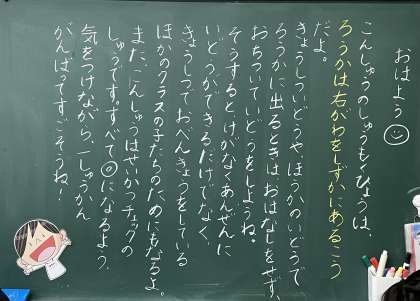 おはよう
こんしゅうのしゅうもくひょうは、
ろうかは右がわをしずかにあるこう
だよ。
きょうしついどうや、ほかのいどうで
ろうかに出るときはおはなしをせず、
おちついていどうをしようね。
そうするとけがなくあんぜんに
いどうができるだけでなく、
きょうしつでおべんきょうをしている
ほかのクラスの子たちのためにもなるよ。
また、こんしゅうはせいかつチェックの
しゅうです。すべて◎になるよう、
気をつけながら、一しゅうかん
がんばってすごそうね!